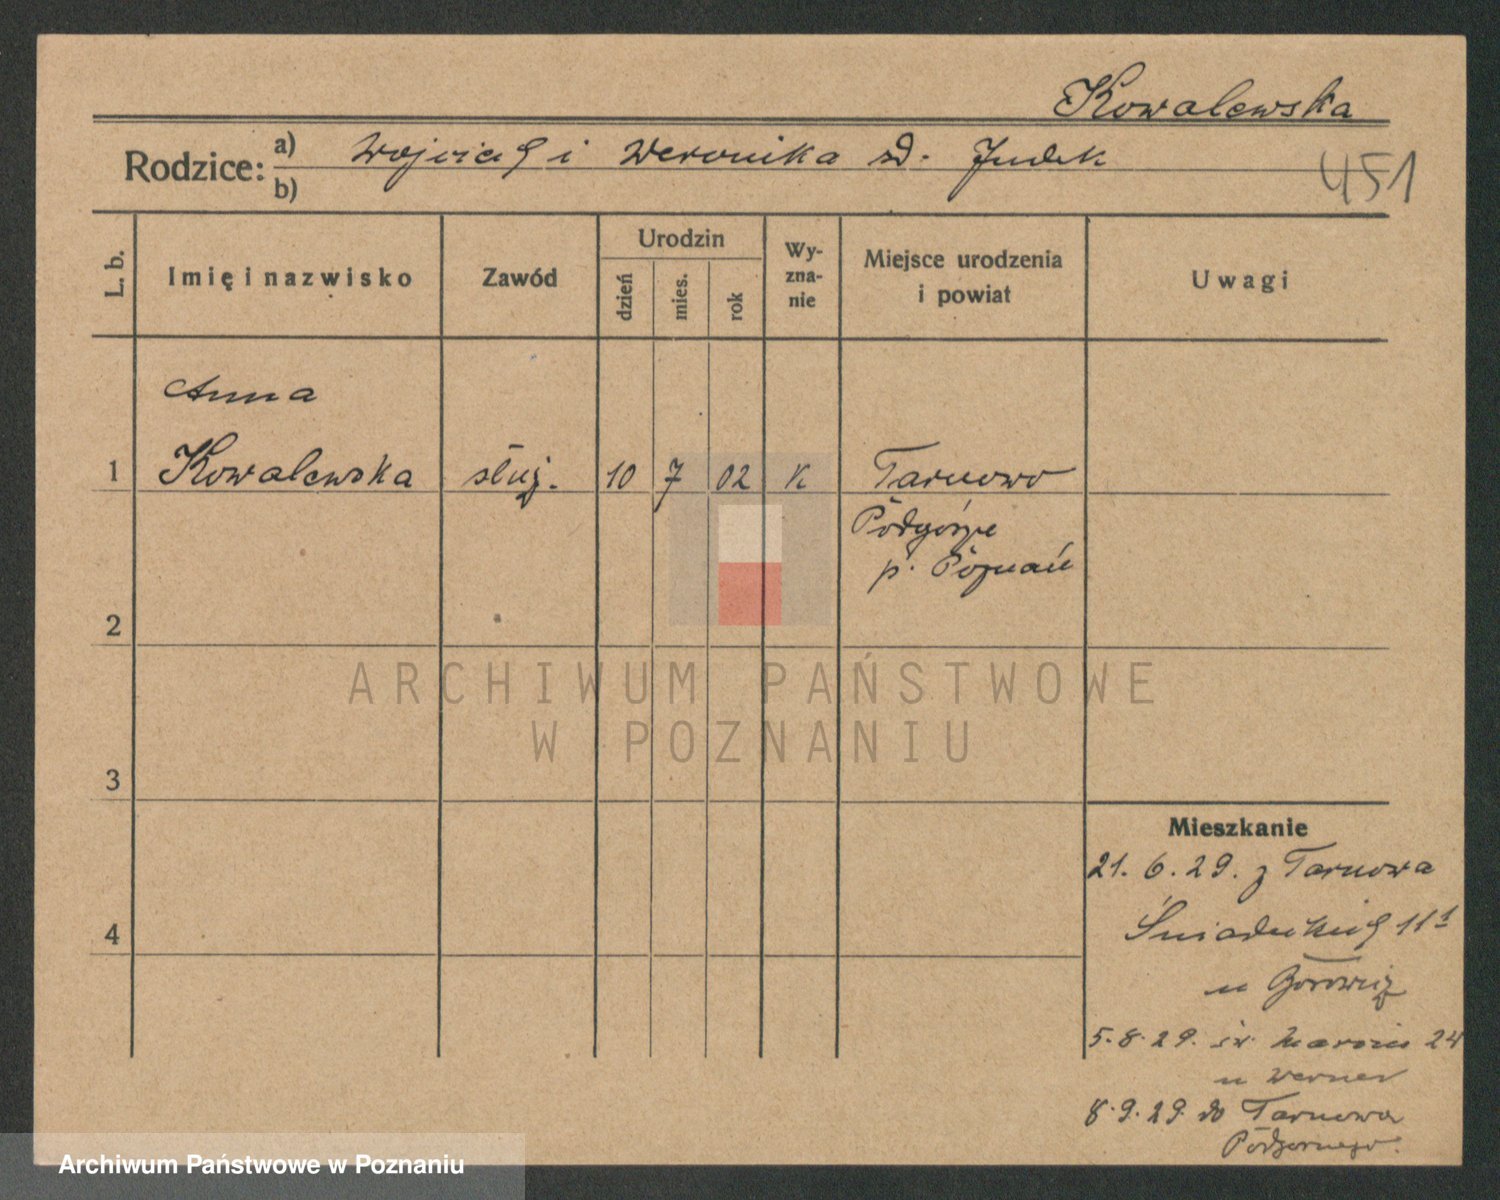 Kowalewska
Rodzice: a) Wojciech i Weronika z d. Judek
b)
451
L. b.
Imię i nazwisko
Zawód
Urodzin
dzień
mies.
rok
Wy-
zna-
nie
Miejsce urodzenia
i powiat
Uwagi
Anna
1 Kowalewska służ. 10 7 02 k Tarnowo
Podgórne
p. Poznań
2
3
4
ARCHIWUM PAŃSTWOWE
W POZNANIU
Mieszkanie
21. 6. 29. z Tarnowa
Śniadeckich 11
u
5. 8. 29. św. Marcin 24
u Werner
8. 9. 29. do Tarnowa
Podgornego.
Archiwum Państwowe w Poznaniu